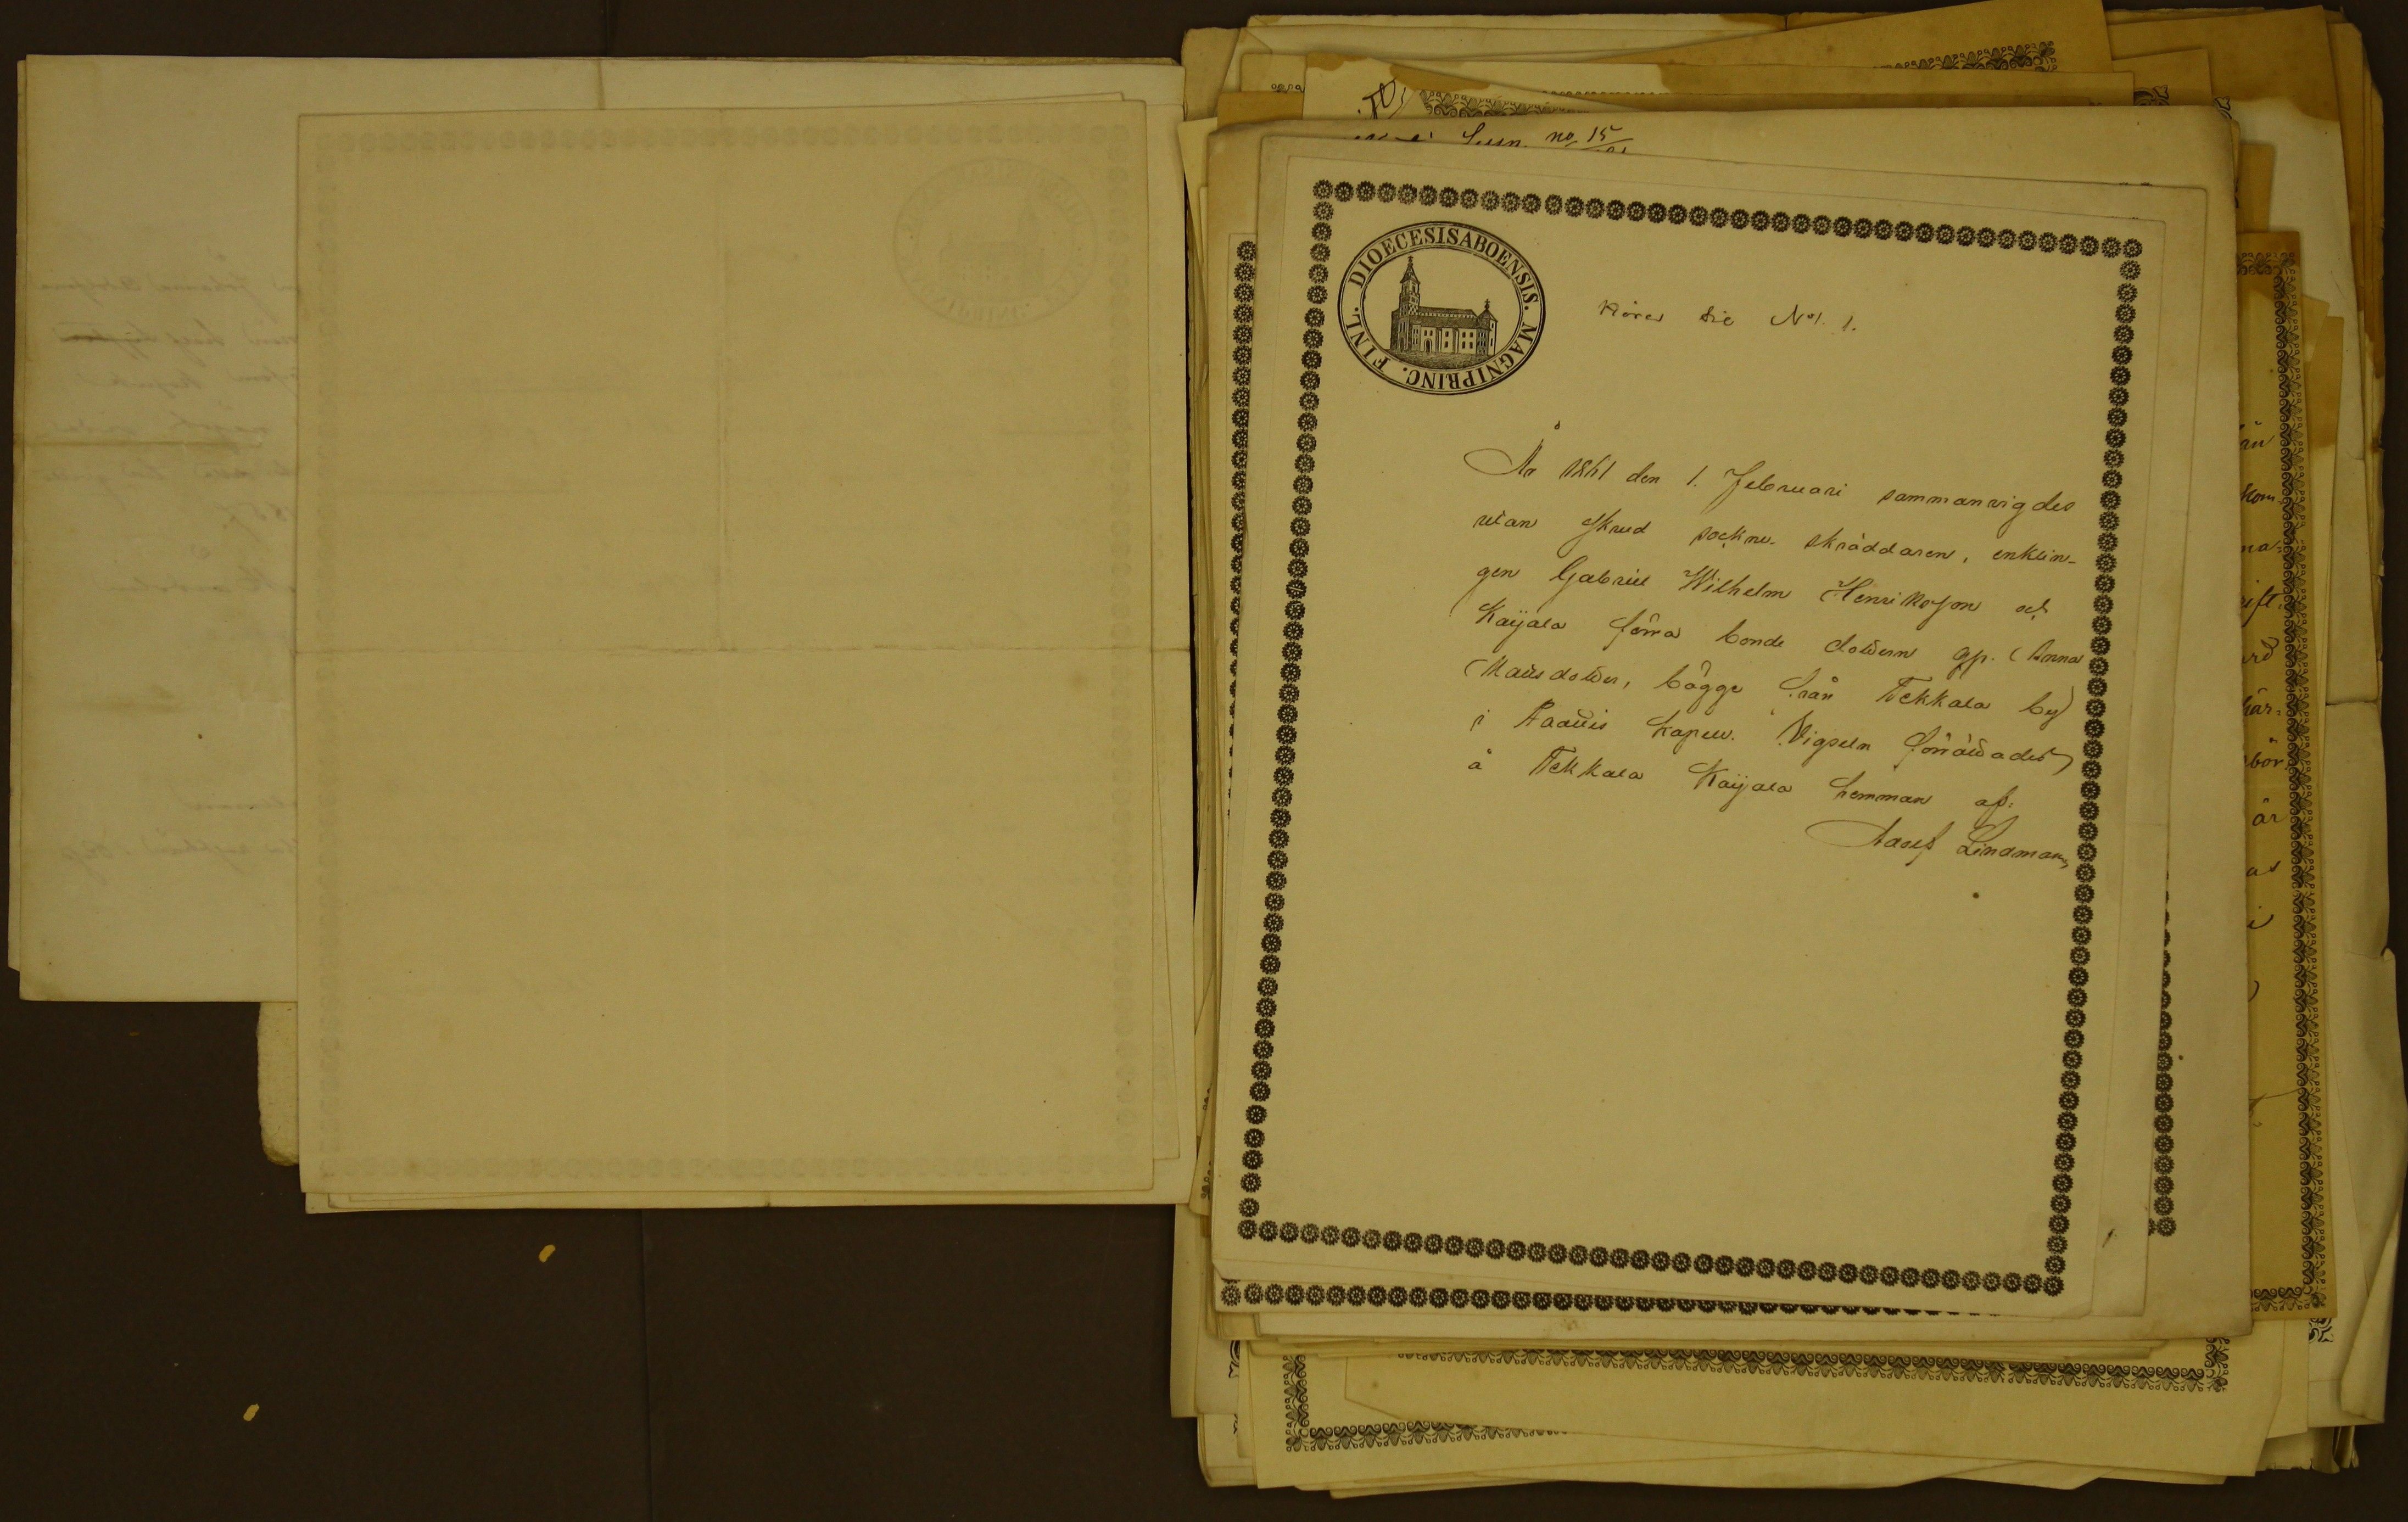 Lusn. no 15
DIOECESIS ABOENSIS. MAGNI PRINC. FINL.
Hörer till No. 1.
År 1861 den 1. Februari sammanvigdes
utan skrud sockne- skräddaren, enklin-
gen Gabriel Wilhelm Henriksson och
Kaijala förra bonde dottern gp. Anna
Matsdotter, bägge från Tekkala by
i Raatis kapell. Vigseln förrättades
å Tekkala Kaijala hemman af:
Adolf Lindman
än
kom-
na-
rift-
här-
bör
är
as
i